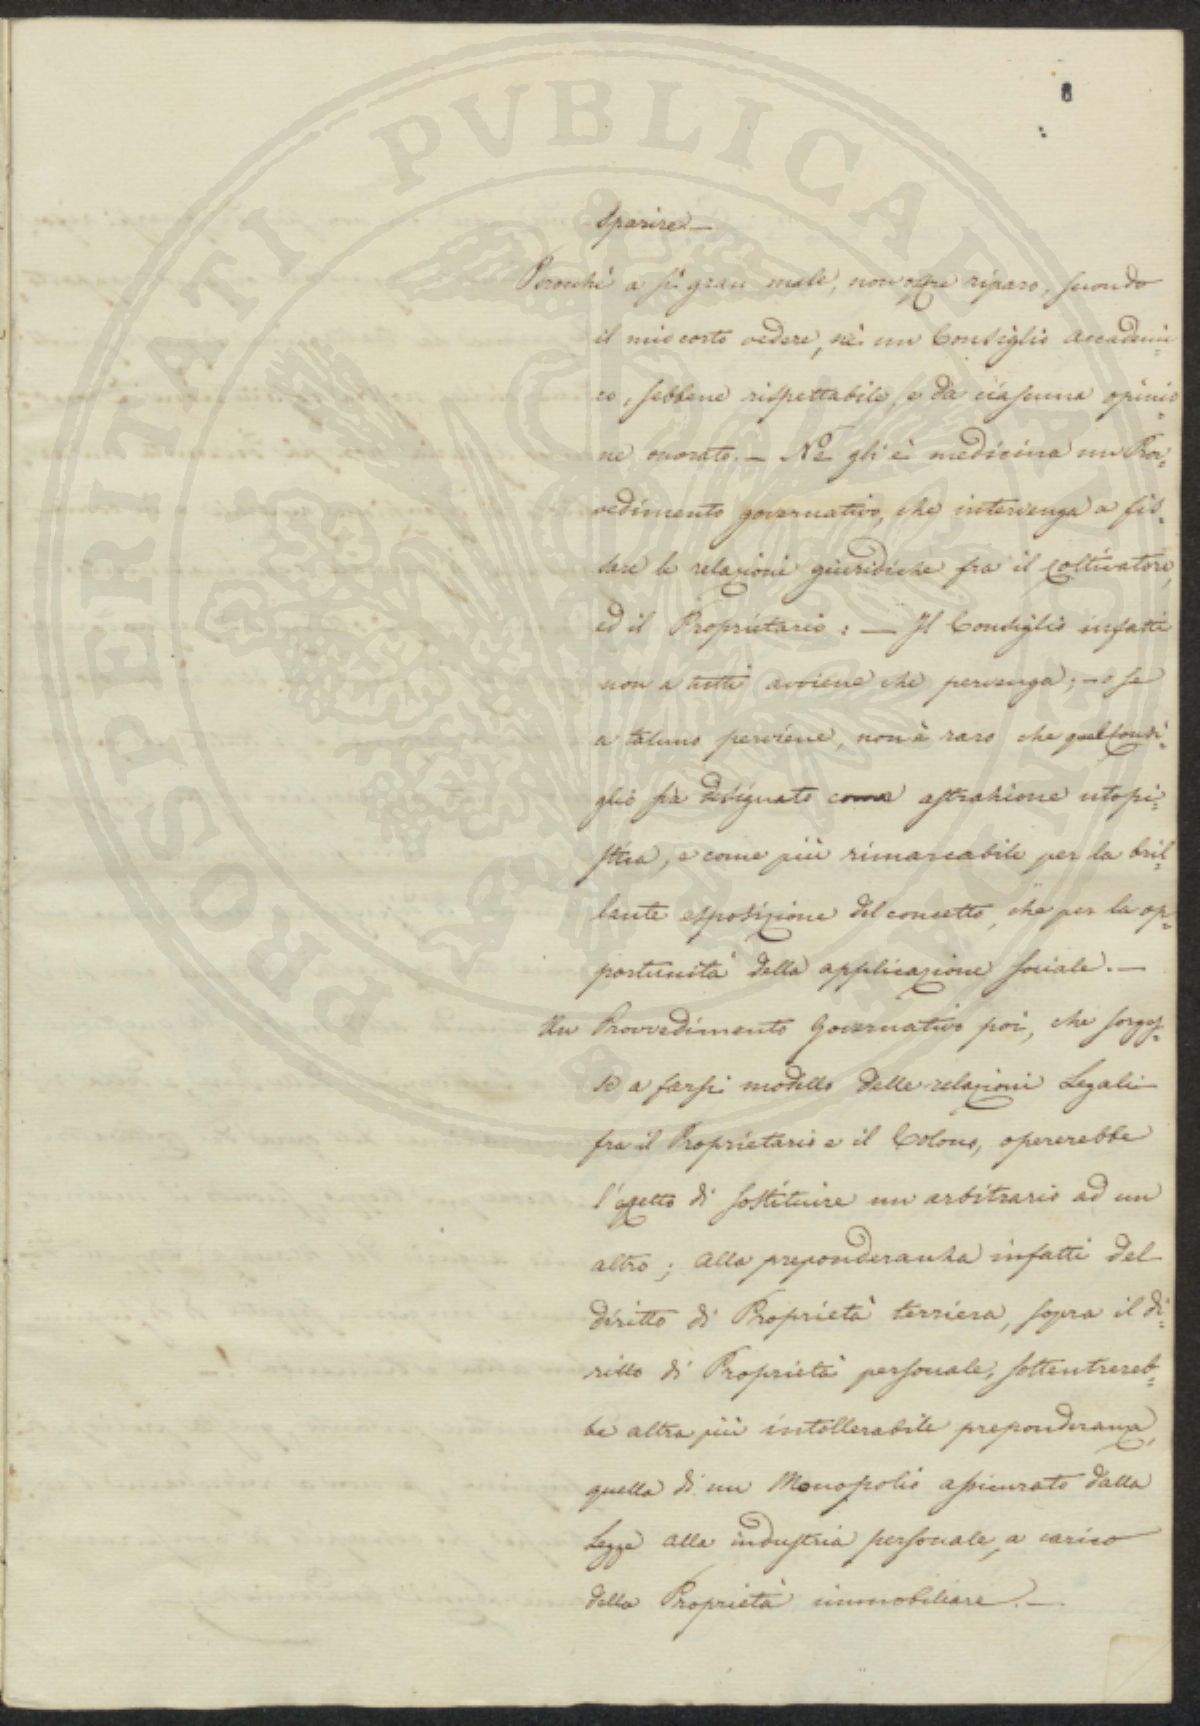 8
sparire —
Perocchè a sì gran male, non offre riparo, secondo
il mio corto vedere, nè un Consiglio Accademi-
co, sebbene rispettabile, e da ciascuna opinio-
ne onorato. — Nè gli è medicina un Prov-
vedimento governativo, che intervenga a fis-
sare le relazioni giuridiche fra il coltivatore,
ed il Proprietario: — Il Consiglio infatti
non a tutti avviene che pervenga; — o se
a taluno perviene, non è raro che quel Consi-
glio sia designato come astrazione utopi-
stica, e come più rimarcabile per la bril-
lante esposizione del concetto, che per la op-
portunità della applicazione sociale. —
Un Provvedimento Governativo poi, che sorges-
se a farsi modello delle relazioni Legali
fra il Proprietario e il Colono, opererebbe
l'effetto di sostituire un arbitrario ad un
altro; alla preponderanza infatti del
diritto di Proprietà terriera, sopra il di-
ritto di Proprietà personale, sottentrereb-
be altra più intollerabile preponderanza,
quella di un Monopolio assicurato dalla
Legge alla industria personale, a carico
della Proprietà immobiliare. —
PROSPERITATI PUBLICAE AUGENDAE